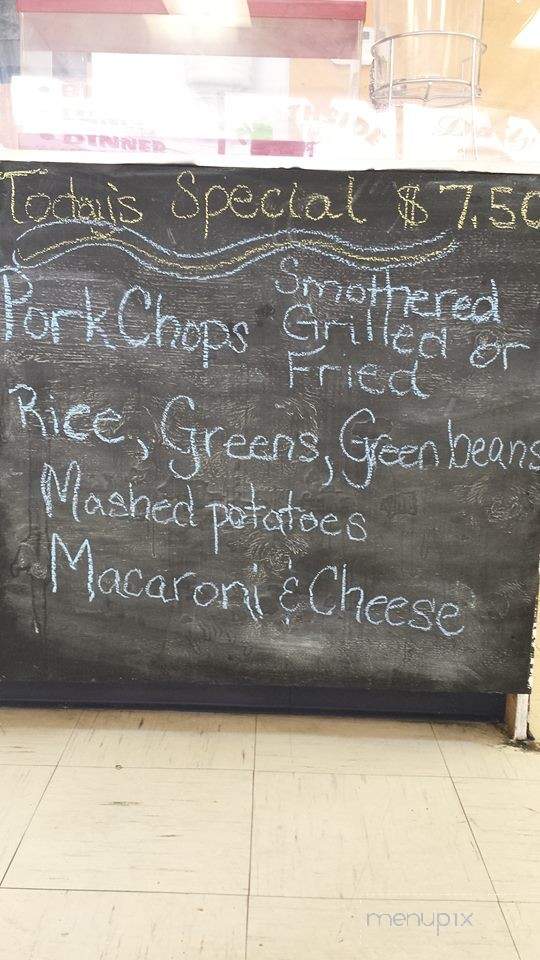 DINNER
Today's Special $7.50
Pork Chops Smothered
Grilled or
Fried
Rice, Greens, Green beans
Mashed potatoes
Macaroni & Cheese
menupix